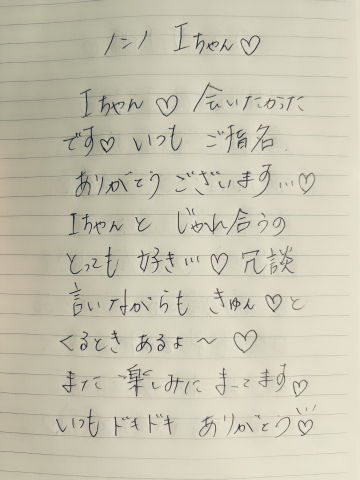 ノンノ Iちゃん♡
Iちゃん♡ 会いたかった
です♡ いつも ご指名
ありがとう ございます…♡
Iちゃんと じゃれ合うの
とっても 好き…♡ 冗談
言いながらも きゅん♡と
くるとき あるよ〜 ♡
また 楽しみに まってます♡
いつも ドキドキ ありがとう♡